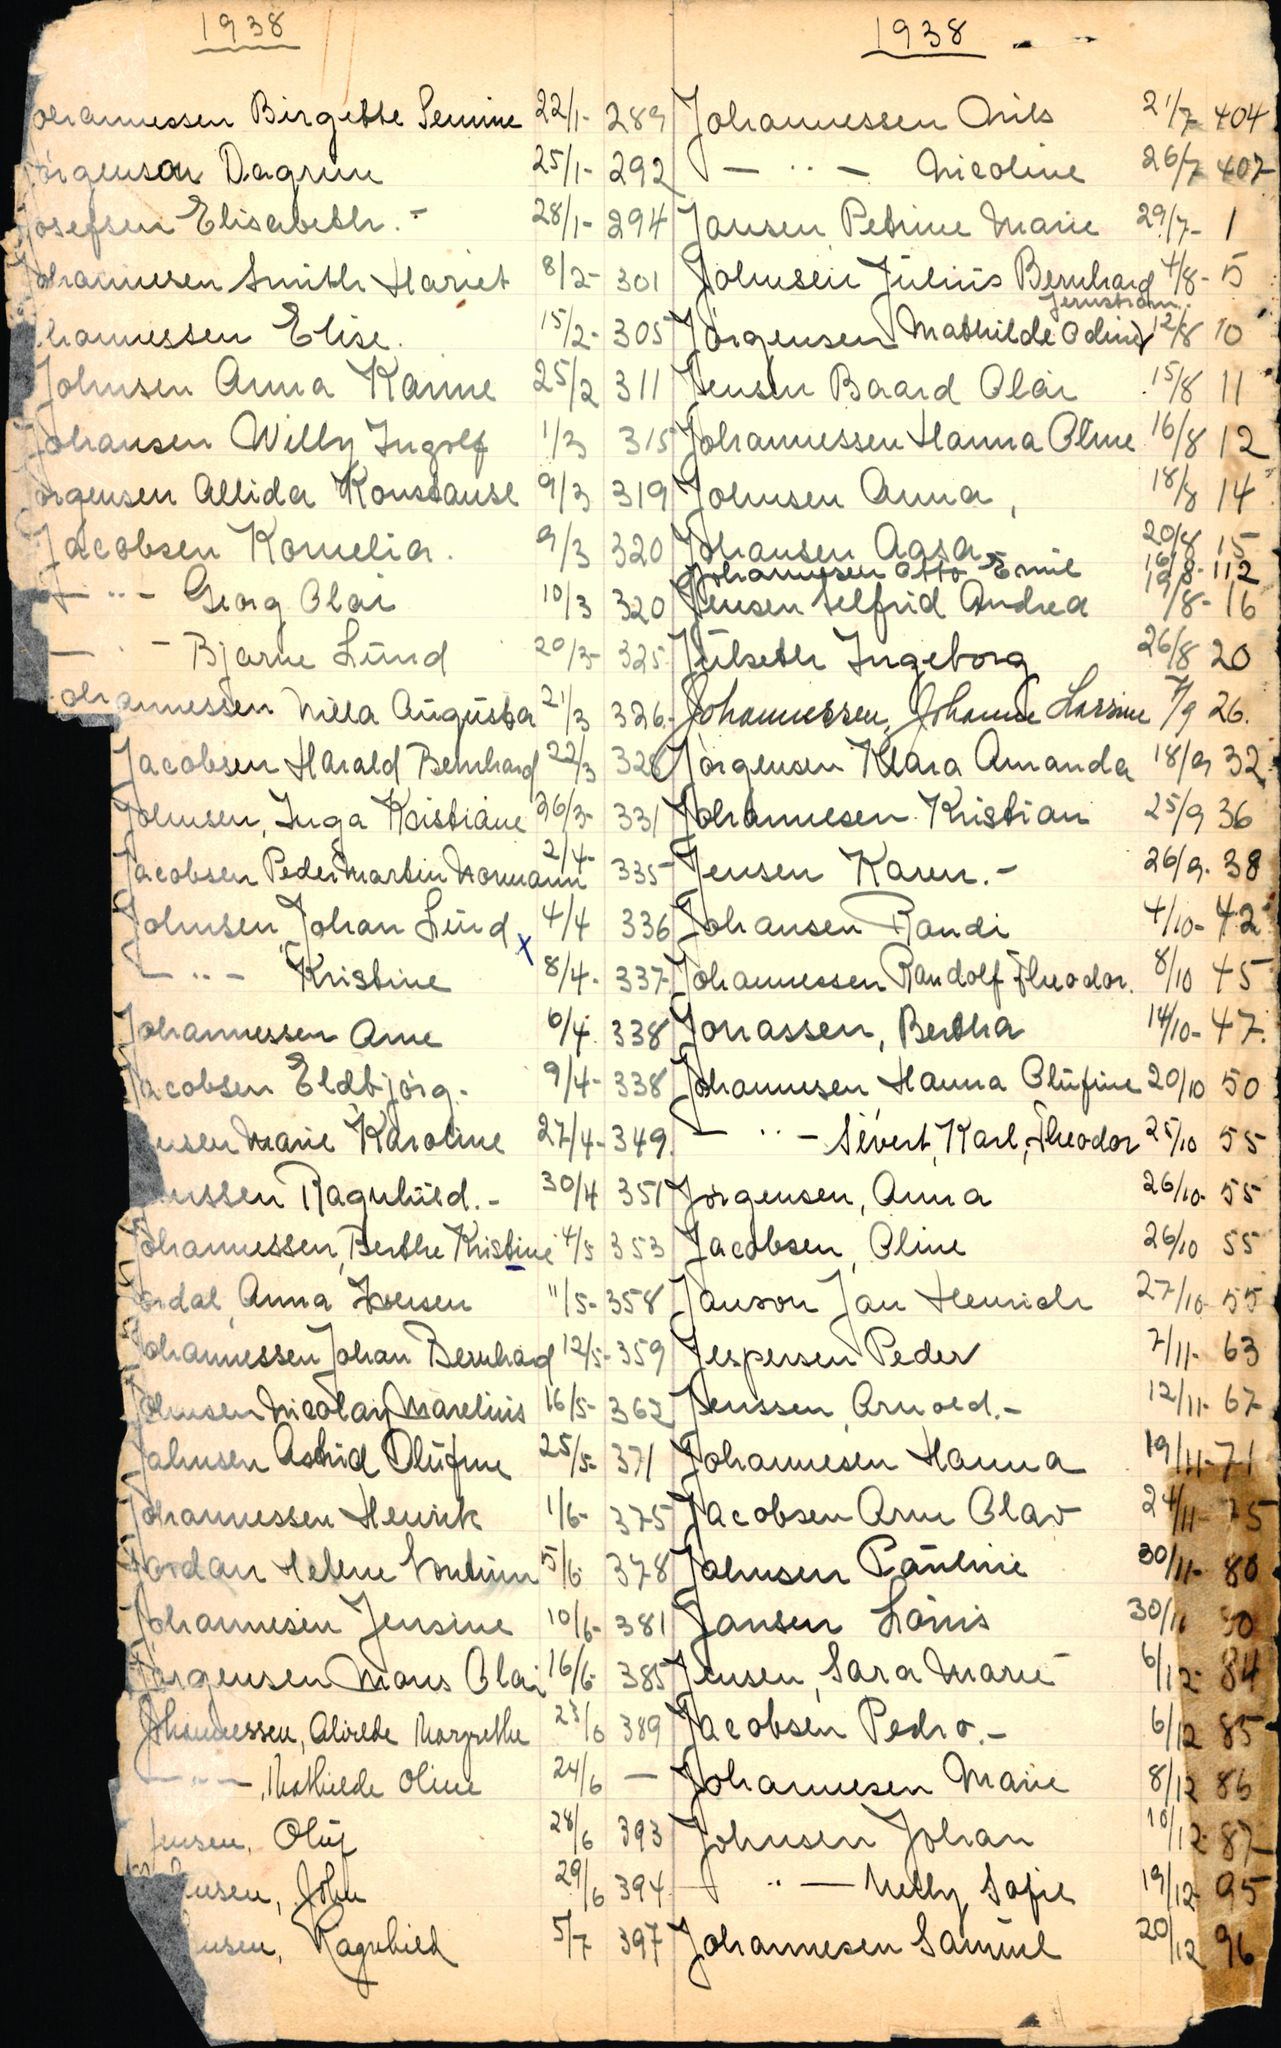 1938
ohannessen Birgitte Semine 22/1- 289
örgenson Dagrun 25/1- 292
Josefsen Elisabeth.- 28/1- 294
Johannesen Smith Hariet 8/2- 301
hannessen Elise. 15/2- 305
Johnsen Anna Karine 25/2 311
Johansen Willy Ingolf 1/3 315
örgensen Allida Konstanse 9/3 319
Jacobsen Kornelia. 9/3 320
— ·· — Georg Olai 10/3 320
— · — Bjarne Lund 20/3- 325
ohannessen Nilla Augusta 21/3 326-
Jacobsen Harald Bernhard 22/3 328
Johnsen, Inga Kristiane 26/3- 331
Jacobsen Peder Martin Normann 2/4- 335
Johnsen Johan Lund x 4/4 336
— ·· — Kristine 8/4- 337
Johannessen Arne 6/4 338
Jacobsen Eldbjörg.- 9/4- 338
ensen Marie Karoline 27/4- 349.
nssen Ragnhild.- 30/4 351
Johannessen, Berthe Kristine 4/5 353
Jordal, Anna Iversen 11/5- 358
Johannessen Johan Bernhard 12/5- 359
Johnsen Nicolay Marelius 16/5- 362
Jahnsen Astrid Olufine 25/5- 371
Johannessen Henrik 1/6- 375
Jordan Helene 5/6 378
Johannesen Jensine 10/6- 381
Jörgensen Mons Olai 16/6- 385
Johannessen, Alvilde Margrethe 23/6 389
— ·· —, Mathilde Oline 24/6 —
Jensen, Oluf 28/6 393
nsen, John 29/6 394
nsen, Ragnhild 5/7 397
1938
Johannessen Nils 21/7- 404
— ·· — Nicoline 26/7 407-
Jansen Petrine Marie 29/7- 1
Johnsen Julius Bernhard 4/8- 5
Jernstrøm
Jörgensen Mathilde Odine 12/8 10
Jensen Baard Olai 15/8 11
Johannessen Hanna Oline 16/8 12
Johnsen Anna, 18/8 14
Johansen Aasa 20/8 15
Johannesen Otto Emil 16/8- 112
Jensen Selfrid Andrea 19/8- 16
Julseth Ingeborg 26/8 20
Johannessen, Johanne Lassine 7/9 26.
Jørgensen Klara Amanda 18/9 32
Johannesen Kristian 25/9 36
Jensen Karen.- 26/9- 38
Johansen Randi 4/10- 42
Johannessen Randolf Theodor. 8/10 45
Jonassen, Bertha 14/10- 47.
Johannesen Hanna Olufine 20/10 50
— ·· — Sévert, Karl, Theodor 25/10 55
Jørgensen, Anna 26/10- 55
Jacobsen, Oline 26/10 55
Janson Jan Henrich 27/10- 55
Jespersen Peder 7/11- 63
Jenssen, Arnold.- 12/11- 67-
Johannesen Hanna 19/11- 71
Jacobsen Arne Olav 24/11- 75
Jahnsen Pauline 30/11- 80
Jansen Louis 30/11 80
Jensen, Sara Marie 6/12- 84
Jacobsen Pedro.- 6/12 85
Johannesen Marie 8/12 86
Johnsen Johan 10/12- 87-
— ·· — Nelly Sofie 19/12- 95
Johannesen Samuel 20/12 96